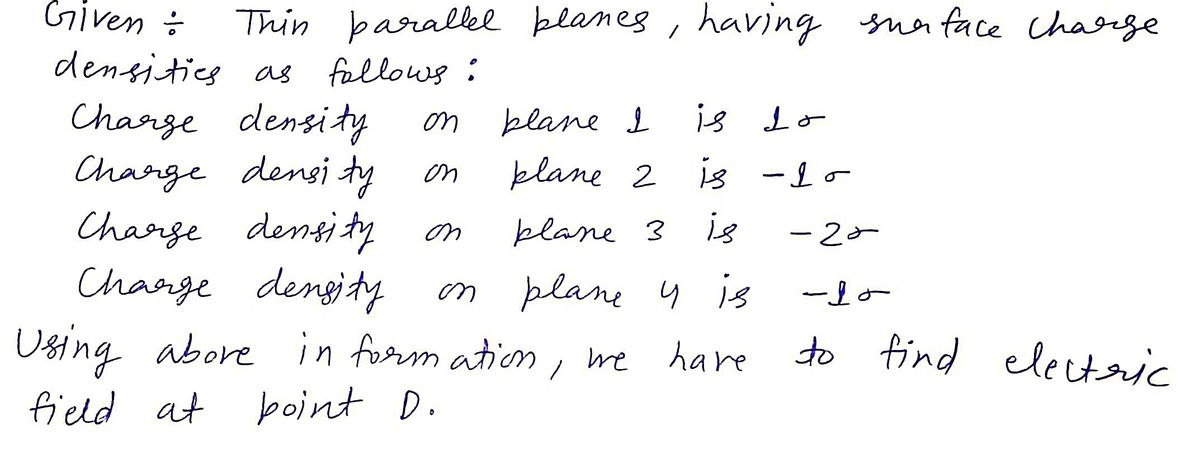 Given ÷ Thin parallel planes, having surface charge
densities as follows :
Charge density on plane 1 is 1σ
Charge density on plane 2 is -1σ
Charge density on plane 3 is -2σ
Charge density on plane 4 is -1σ
Using above information, we have to find electric
field at point D.